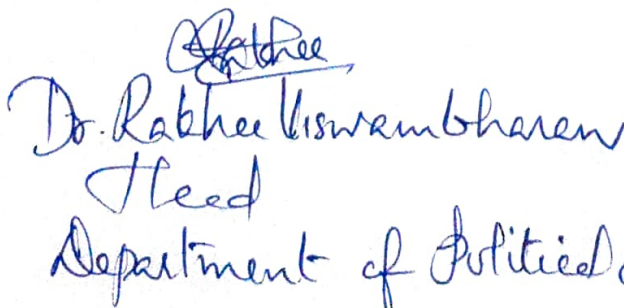 Rakhee
Dr. Rakhee Viswambharan
Head
Department of Political